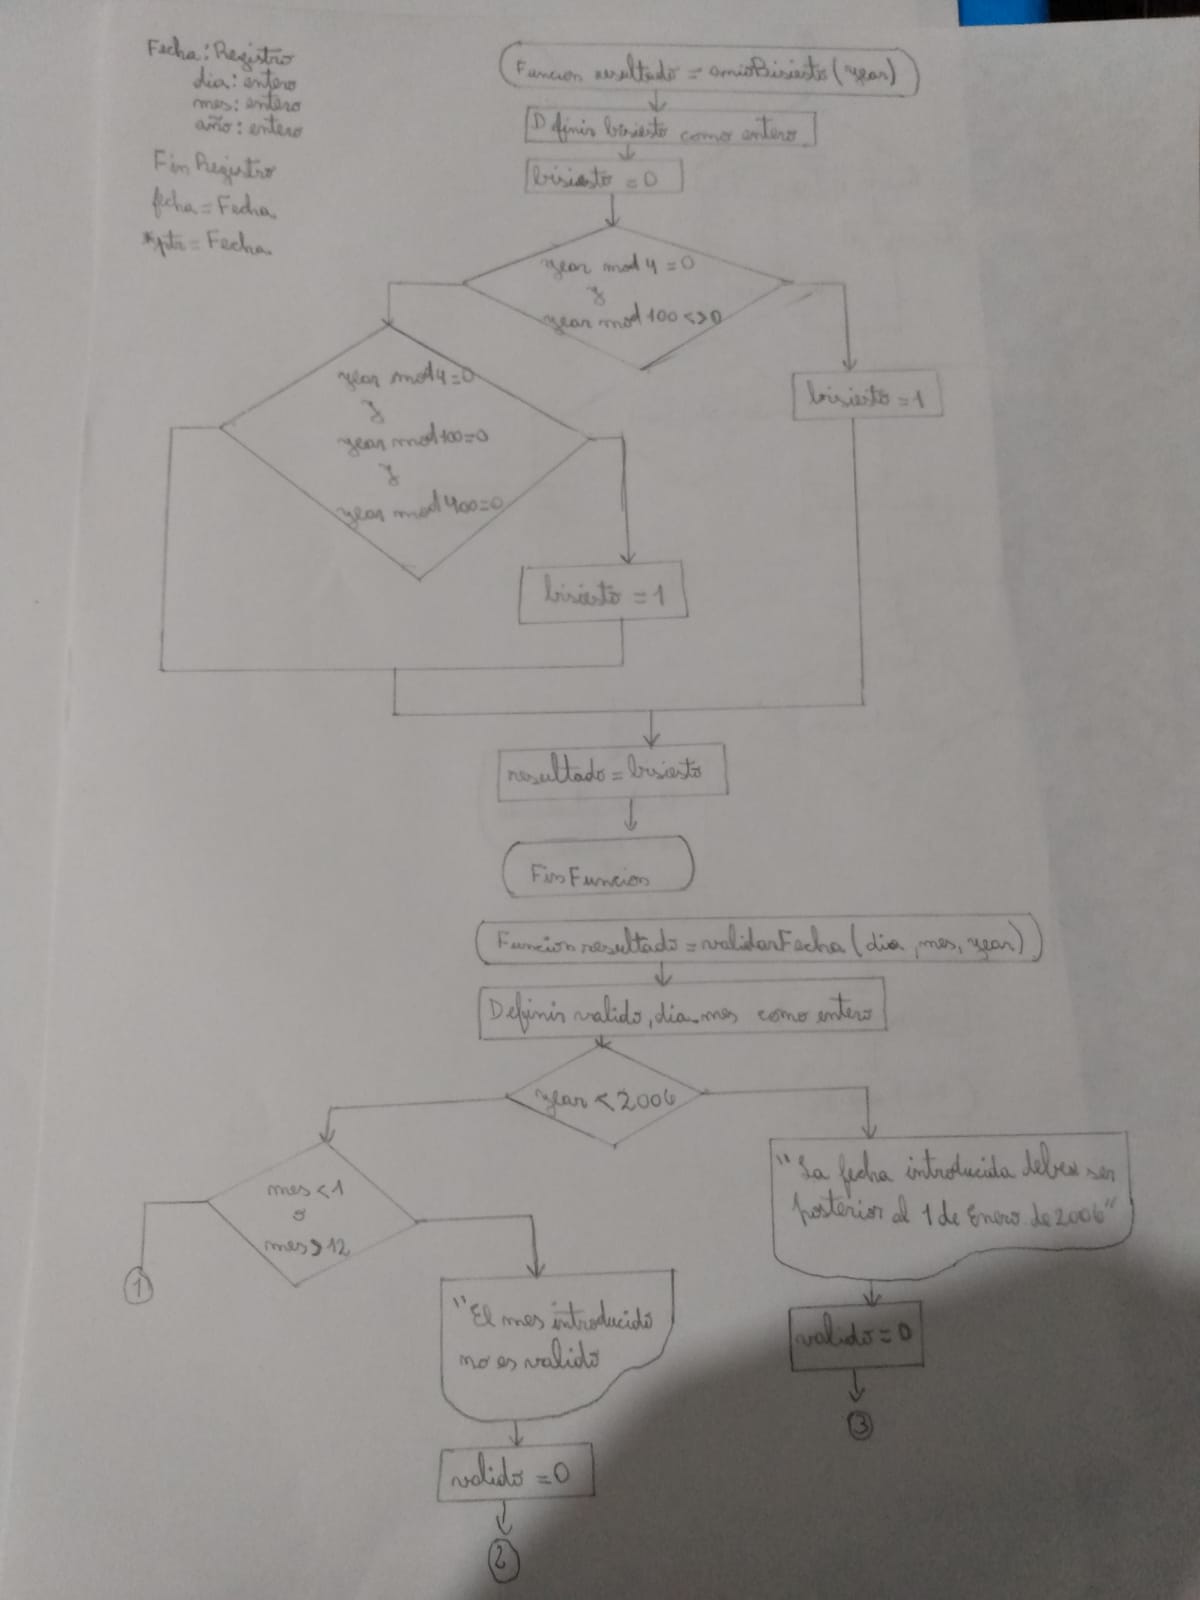 Fecha: Registro
dia: entero
mes: entero
año: entero
Fin Registro
fecha = Fecha
*ptr = Fecha
Funcion resultado = anioBisiesto (year)
Definir bisiesto como entero
bisiesto = 0
year mod 4 = 0
y
year mod 100 <> 0
year mod 4 = 0
y
year mod 100 = 0
y
year mod 400 = 0
bisiesto = 1
bisiesto = 1
resultado = bisiesto
Fin Funcion
Funcion resultado = validarFecha (dia, mes, year)
Definir valido, dia_mes como entero
year < 2006
mes < 1
o
mes > 12
1
"La fecha introducida debe ser
posterior al 1 de Enero de 2006"
"El mes introducido
no es valido
valido = 0
3
valido = 0
2